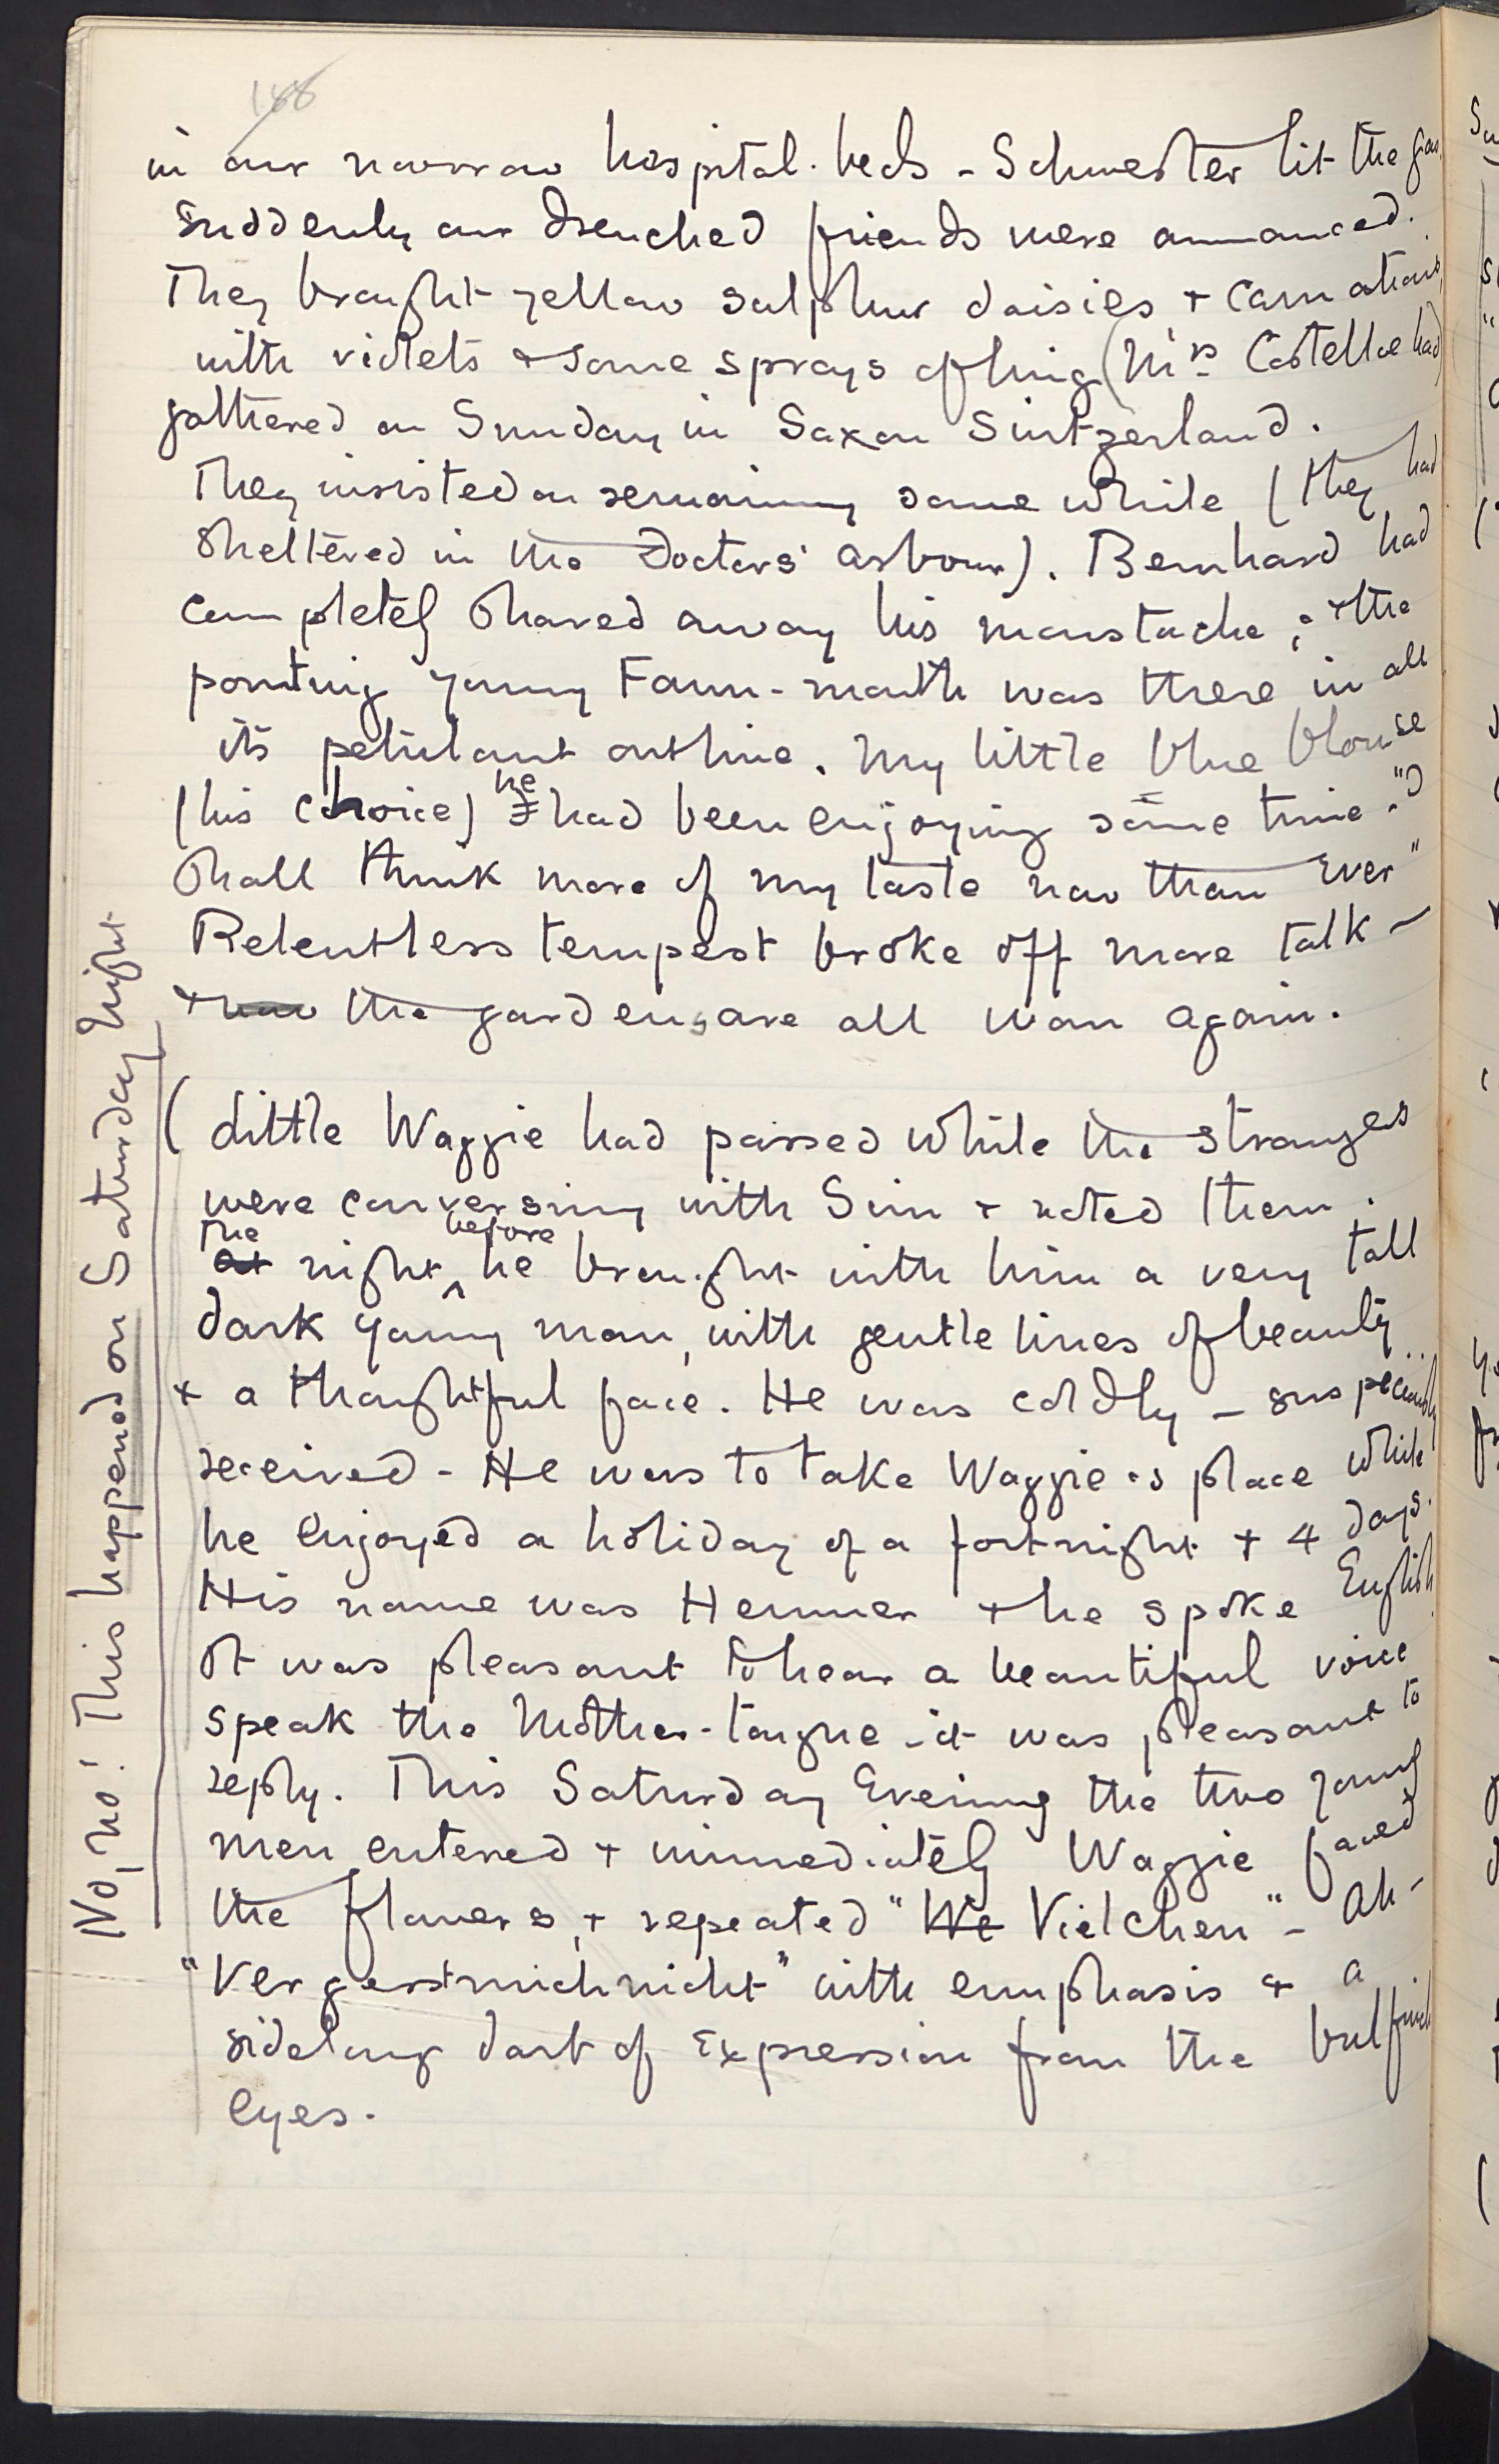 166
in our narrow hospital-beds - Schwester lit the gas,
suddenly our drenched friends were announced.
They brought yellow sulphur daisies + carnations,
with violets + some sprays of ling (Mrs Costelloe had)
gathered on Sunday in Saxon Switzerland.
They insisted on remaining some while (they had
sheltered in the Doctors' arbour). Bernhard had
completely shaved away his moustache; + the
pouting young Faun-mouth was there in all
its petulant outline. My little blue blouse
(his choice) he I had been enjoying some time. "I
shall think more of my taste now than ever"
Relentless tempest broke off more talk -
+ now the gardens are all wan again.
(Little Waggie had passed while the stranges
were conversing with Sim + noted them.
The at night before he brought with him a very tall
dark young man, with gentle lines of beauty
+ a thoughtful face. He was coldly - suspiciously
received - He was to take Waggie's place while
he enjoyed a holiday of a fortnight + 4 days.
His name was Hemmer + he spoke English
It was pleasant to hear a beautiful voice
speak the Mother-tongue - it was pleasant to
reply. This Saturday Evening the two young
men entered + immediately Waggie faced
the flowers, + repeated "We Vielchen" - Ah -
"Vergesstmichnicht" with emphasis + a
sidelong dart of expression from the bulfinch
eyes.
No, no! This happened on Saturday Night